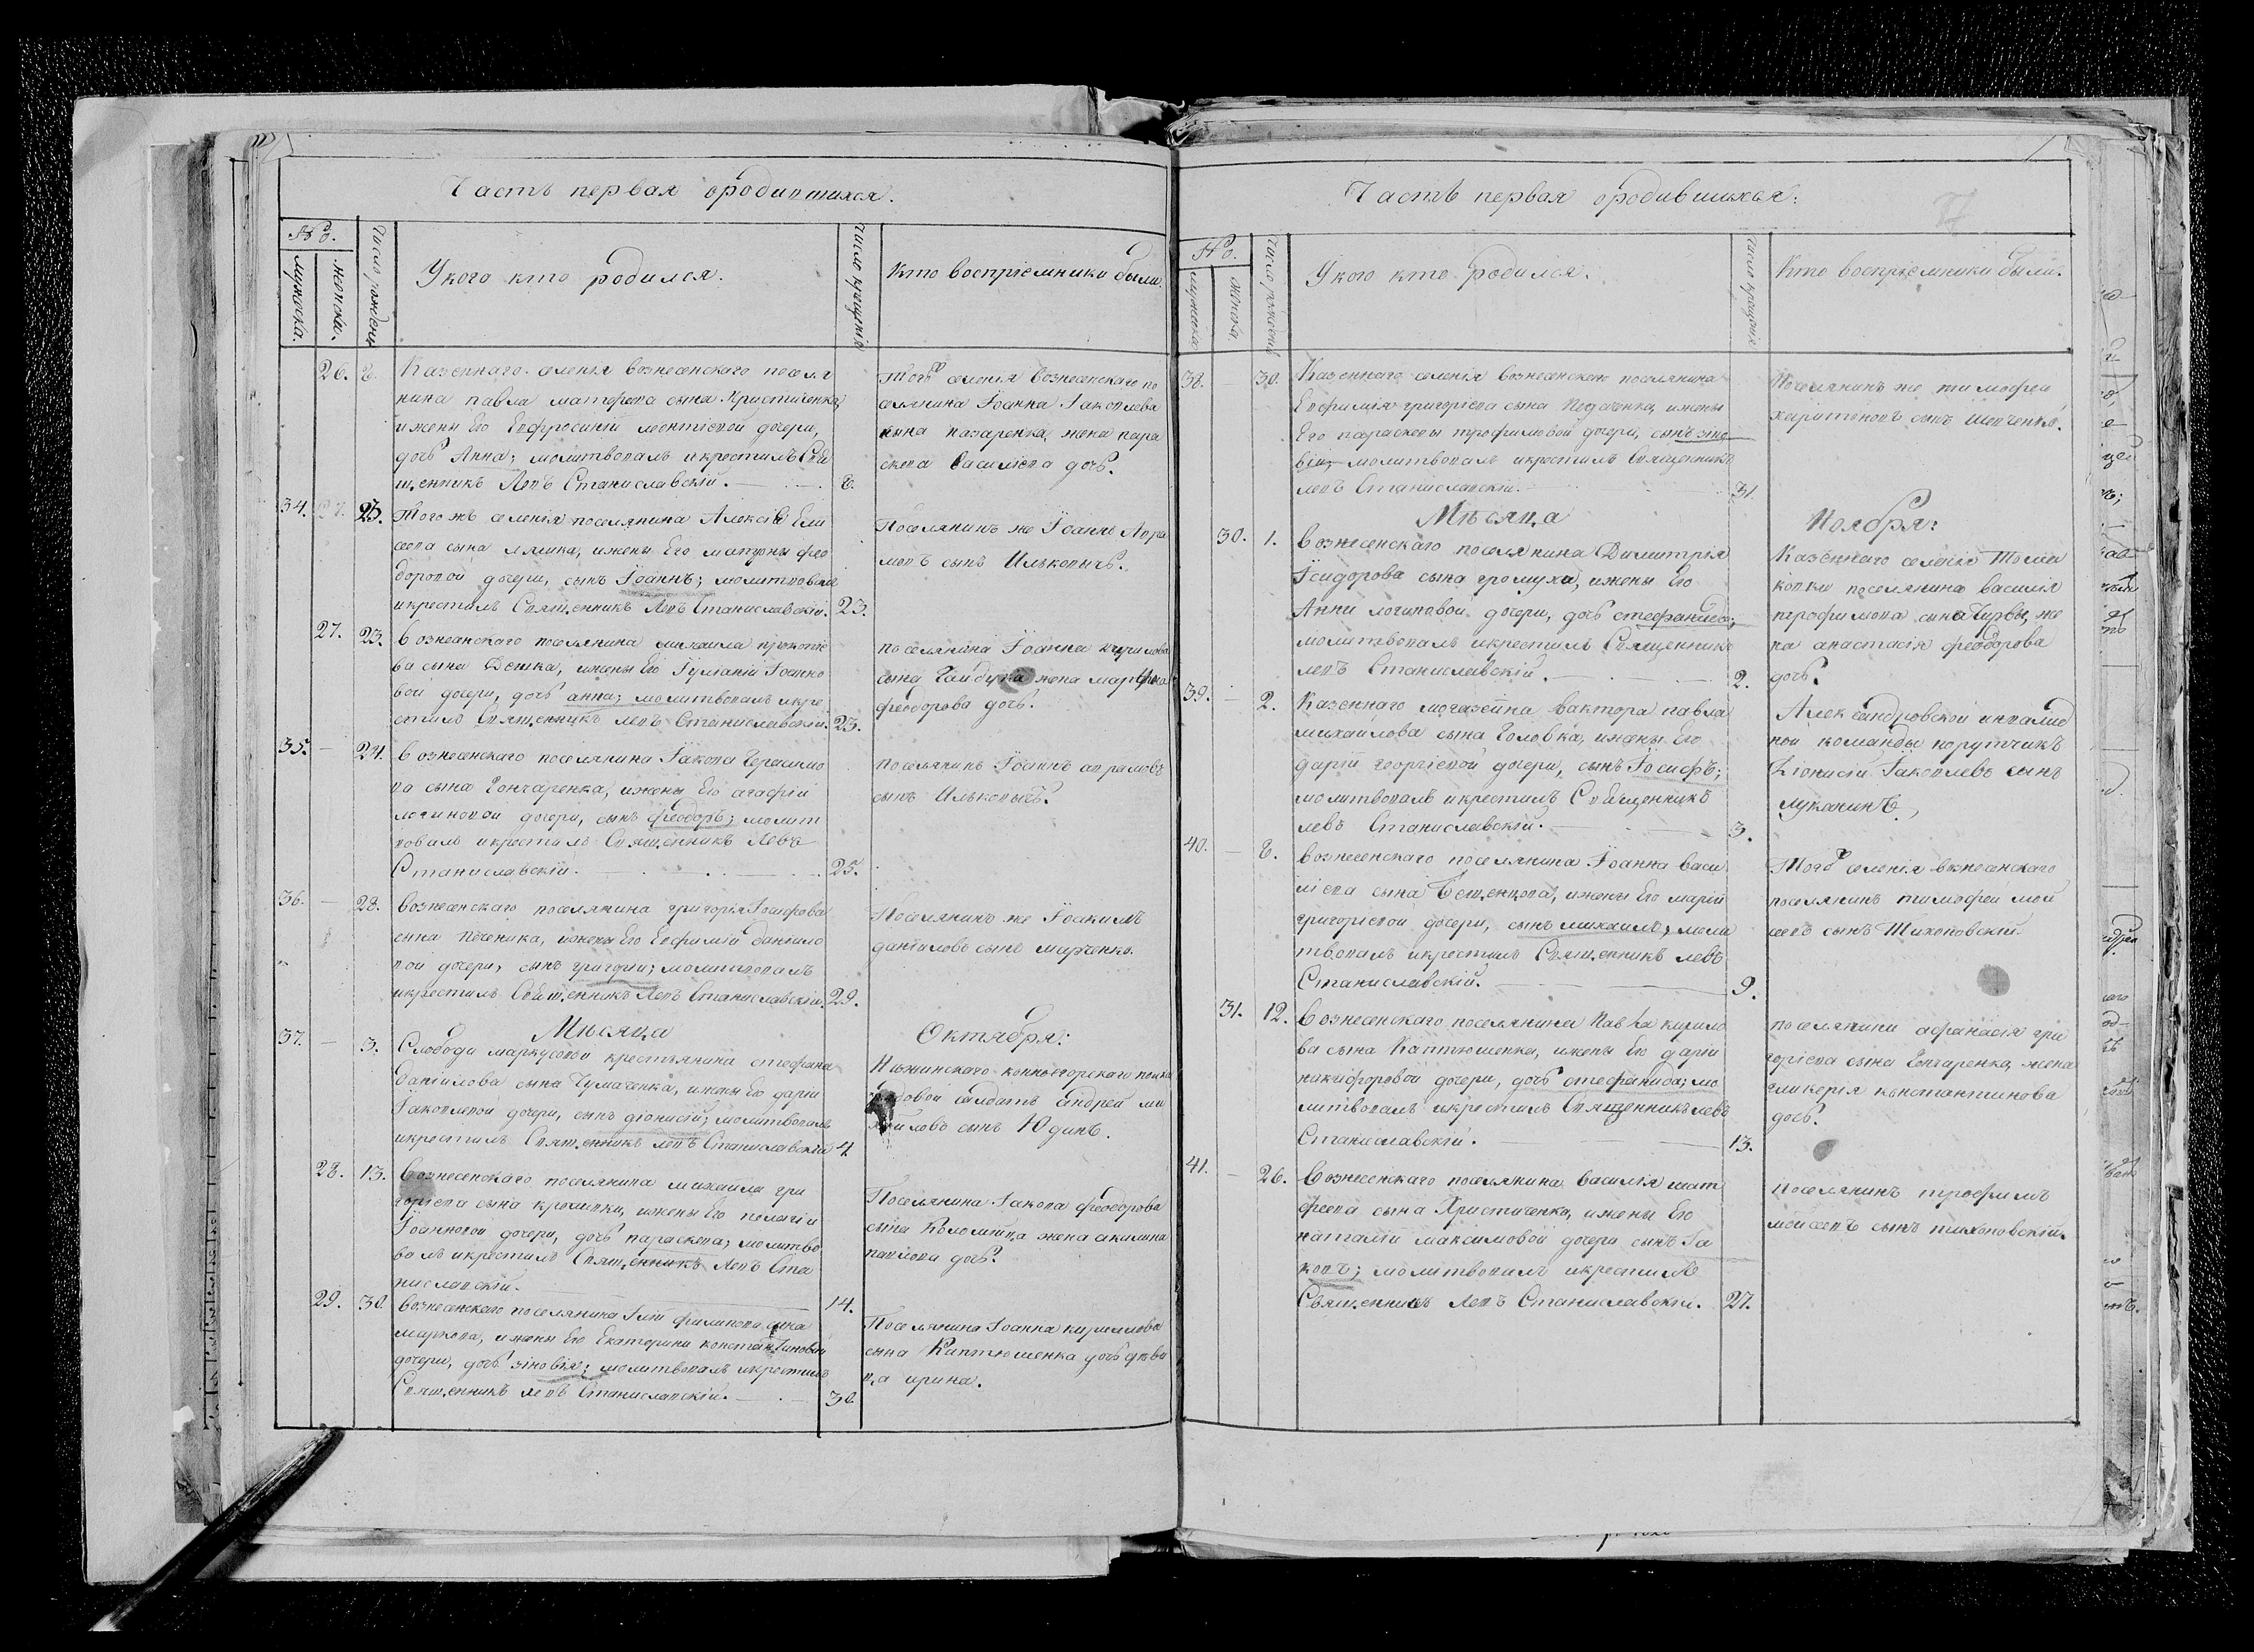 Часть первая ородившихся.
№
мужеска.
женска.
число рожденія
У кого кто родился.
число крещенія
Кто воспріемники были.
26. 8. Казеннаго селенія вознесенскаго поселя
нина павла матфеева сына Христиченка,
и жены Его Евфросиніи леонтіевой дочери,
дочь Анна; молитвовалъ и крестилъ Свя
щенникъ Левъ Станиславскій. 8.
Того селенія вознесенскаго по
селянина Іоанна Іаковлева
сына назаренка, жена пара
скева василіева дочь.
34. 27. 23. Того жъ селенія поселянина Алексѣя Ели
сеева сына лялика, и жены Его матроны фео
доровой дочери, сынъ Іоаннъ; молитвовалъ
и крестилъ Священникъ Левъ Станиславскій. 23.
Поселянинъ же Іоаннъ Авра
мовъ сынъ Ильковичъ.
27. 23. вознесенскаго поселянина михаила прокопіе
ва сына и жены Его Іуліаніи Іоанно
вой дочери, дочь анна; молитвовалъ и кре
стилъ Священникъ левъ Станиславскій. 23.
поселянина Іоанна кирилова
сына Гайдука жена марфа
феодорова дочь.
35. 24. вознесенскаго поселянина Іакова Герасимо
ва сына Гончаренка, и жены Его агафіи
логиновой дочери, сынъ феодоръ; молит
вовалъ и крестилъ Священникъ Левъ
Станиславскій. 25.
поселянинъ Іоаннъ аврамовъ
сынъ Ильковичъ.
36. 28. вознесенскаго поселянина григорія Іосифова
сына Печеника, и жены Его Евфиміи данило
вой дочери, сынъ григорій; молитвовалъ
и крестилъ Священникъ Левъ Станиславскій. 29.
Поселянинъ же Іоакимъ
даніиловъ сынъ марченко.
Мѣсяца Октября:
37. 3. Слободи маркусовой крестьянина стефана
даніилова сына Чумаченка, и жены Его даріи
Іаковлевой дочери, сынъ діонисій; молитвовалъ
и крестилъ Священникъ левъ Станиславскій 4.
Нѣжинскаго конноегорскаго полка
рядовой салдатъ андрей ми
хайловъ сынъ Юдинъ.
28. 13. Вознесенскаго поселянина михаила гри
горіева сына и жены Его пелагіи
Іоанновой дочери, дочь параскева; молитво
валъ и крестилъ Священникъ Левъ Ста
ниславскій. 14.
Поселянина Іакова феодорова
сына Коломійца жена акилина
павлова дочь.
29. 30. вознесенскаго поселянина Іліи филипова сына
маркова, и жены Его Екатерини константиновой
дочери, дочь зіновія; молитвовалъ и крестилъ
Священникъ левъ Станиславскій. 30.
Поселянина Іоанна кирилова
сына Каптюшенка дочь дѣви
ца ирина.
Часть первая ородившихся:
№
мужеска
женска.
число рожденія
У кого кто родился.
число крещенія
Кто воспріемники были.
38. 30. Казеннаго селенія вознесенскаго поселянина
Евфимія григоріева сына и жены
Его параскевы трофимовой дочери, сынъ зіно
вій; молитвовалъ и крестилъ Священникъ
левъ Станиславскій. 31.
Поселянинъ же тимофей
харитоновъ сынъ Шевченко.
Мѣсяца Ноября:
30. 1. вознесенскаго поселянина Димитрія
Ісидорова сына громуха, и жены Его
Анни логиновой дочери, дочь стефанида;
молитвовалъ и крестилъ Священникъ
левъ Станиславскій. 2.
Казеннаго селенія Тома
ковки поселянина василія
трофимова сына же
на анастасія феодорова
дочь.
39. 2. Казеннаго магазейна вактора павла
михайлова сына Головка, и жены Его
даріи георгіевой дочери, сынъ Іосифъ;
молитвовалъ и крестилъ Священникъ
левъ Станиславскій. 3.
Александровской инвалид
ной команды порутчикъ
Діонисій Іаковлевъ сынъ
лукачинъ.
40. 8. вознесенскаго поселянина Іоанна васи
ліева сына и жены Его маріи
григоріевой дочери, сынъ михаилъ; моли
твовалъ и крестилъ Священникъ левъ
Станиславскій. 9.
Того селенія вознесенскаго
поселянинъ тимофей мой
сеевъ сынъ Тихоновскій.
31. 12. Вознесенскаго поселянина Павла кирило
ва сына Каптюшенка, и жены Его даріи
никифоровой дочери, дочь стефанида; мо
литвовалъ и крестилъ Священникъ левъ
Станиславскій. 13.
поселянина афанасія гри
горіева сына Гончаренка, жена
гликерія константинова
дочь.
41. 26. Вознесенскаго поселянина василія мат
феева сына Христиченка, и жены Его
наталіи максимовой дочери сынъ Іа
ковъ; молитвовалъ и крестилъ
Священникъ Левъ Станиславскій. 27.
поселянинъ трофимъ
мойсеевъ сынъ тихоновскій.